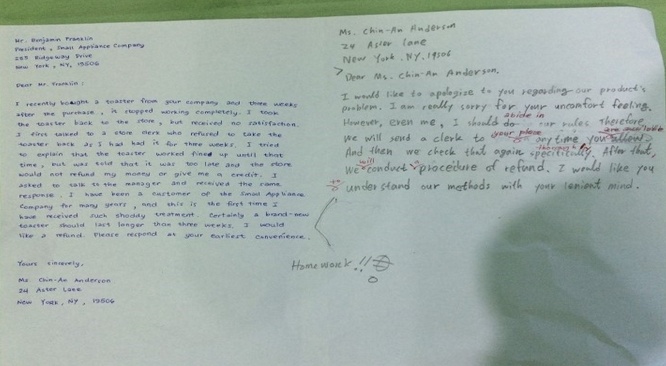 Mr. Benjamin Franklin
President, Small Appliance Company
Ridgeway Drive
New York, NY, 19506
Dear Mr. Franklin:
I recently bought a toaster from your company and three weeks
after the purchase, is stopped working completely. I took
the toaster back to the store, but received no satisfaction.
I first talked to a store clerk who refused to take the
toaster back as I had had it for three weeks. I tried
to explain that the toaster worked fine up until that
time, but was told that it was too late and the store
would not refund my money or give me a credit. I
asked to talk to the manager and received the same
response. I have been a customer of the Small Appliance
Company for many years, and this is the first time I
have received such shoddy treatment. Certainly a brand-new
toaster should last longer than three weeks. I would
like a refund. Please respond at your earliest convenience.
Yours sincerely,
Ms. Chin-An Anderson
24 Aster Lane
New York, NY, 19506
Ms. Chin-An Anderson
24 Aster lane
New York. NY. 19506
Dear Ms. Chin-An Anderson.
I would like to apologise to you regarding our product's
problem. I am really sorry for your uncomfort feeling.
abide in
However, even me, I should do our rules. Therefore,
your place are available
We will send a clerk to anytime you allow.
And then we check that again specifically. After that,
will
We conduct procedure of refund. I would like you
to
understand our methods with your lenient mind.
Homework!!